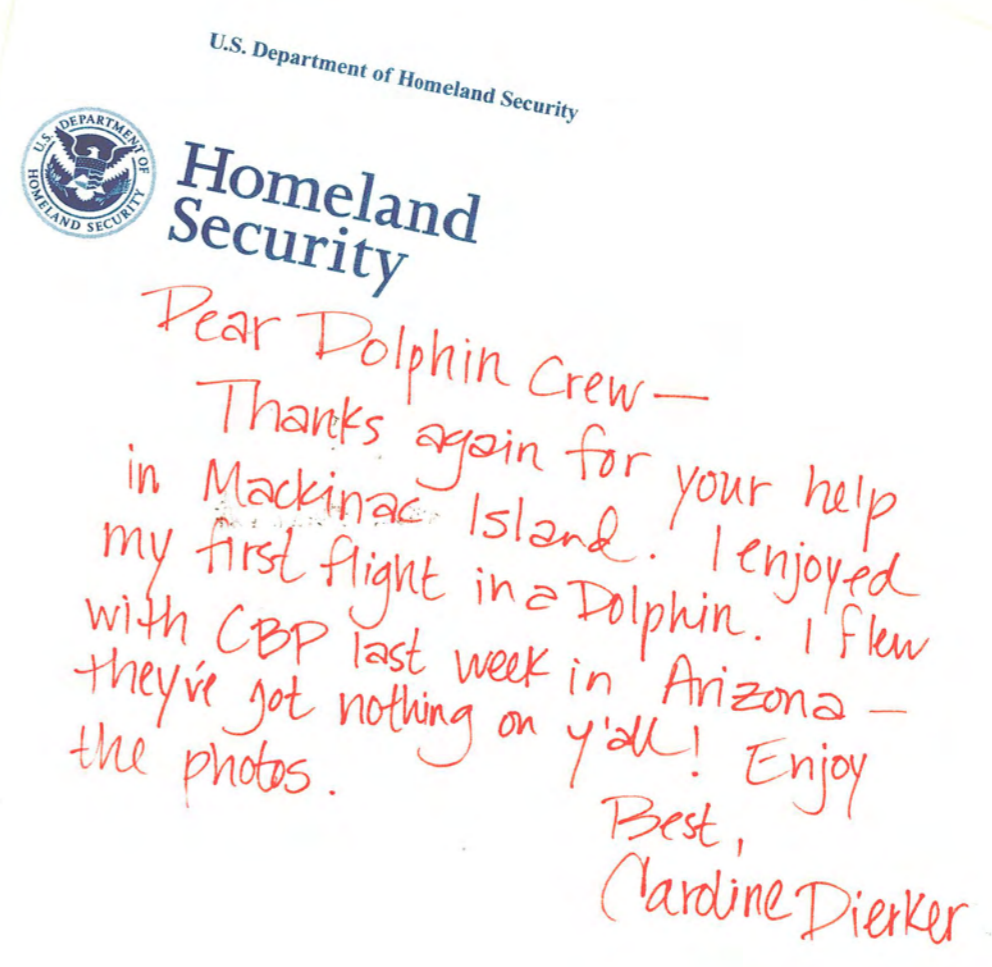 U.S. Department of Homeland Security
U.S. DEPARTMENT OF HOMELAND SECURITY
Homeland
Security
Dear Dolphin Crew—
Thanks again for your help
in Mackinac Island. I enjoyed
my first flight in a Dolphin. I flew
with CBP last week in Arizona –
they've got nothing on y'all! Enjoy
the photos.
Best,
Caroline Dierker